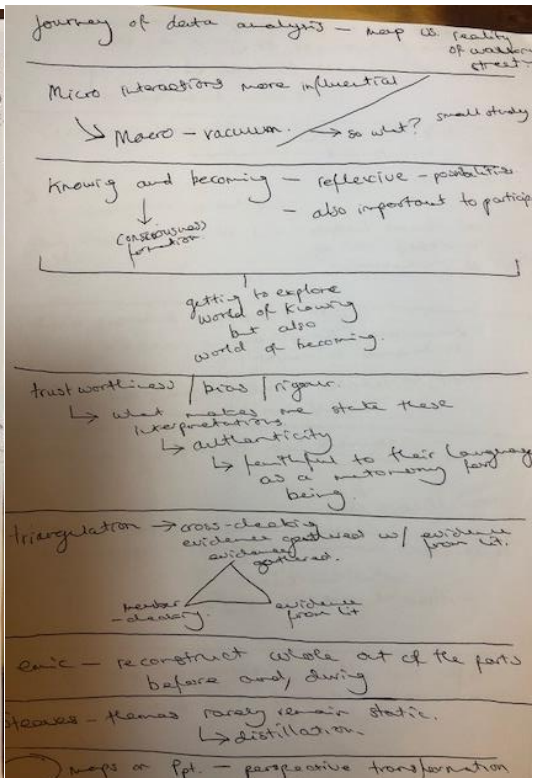 Journey of data analysis – map vs. reality
of
street
Micro interactions more influential
↘ Macro – vacuum. → so what? small study
Knowing and becoming – reflexive – possibilities
↓ – also important to particip
consciousness
formation
getting to explore
world of knowing
but also
world of becoming.
trustworthiness / bias / rigour.
↳ what makes me state these
interpretations
↳ authenticity
↳ faithful to their language
as a metonomy for
being.
triangulation → cross-checking
evidence gathered w/ evidence
from lit.
evidence
gathered.
member
-checking.
evidence
from lit
emic – reconstruct whole out of the parts
before and, during
– themes rarely remain static.
↳ distillation.
maps on Ppt. – perspective transformation